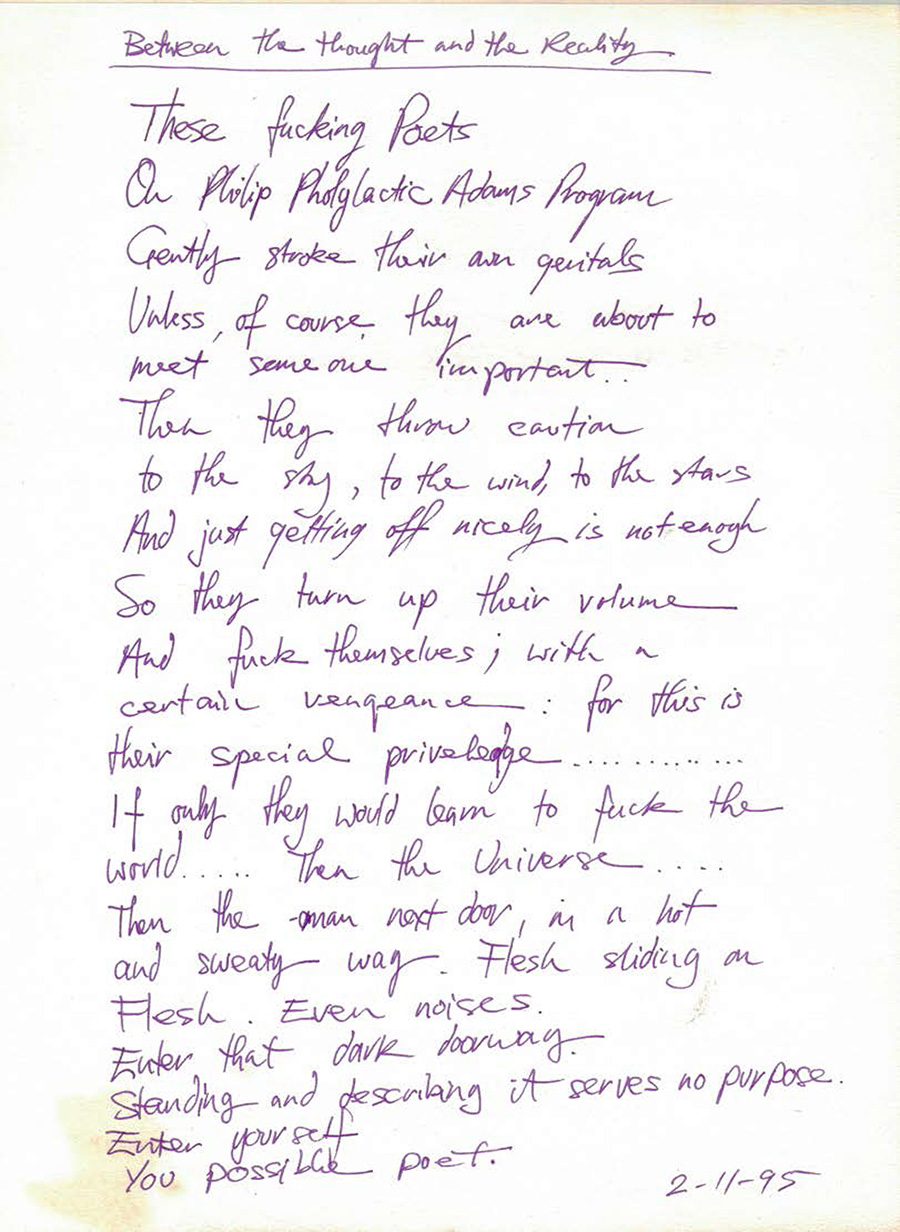 Between the thought and the Reality
These fucking Poets
On Philip Phofylactic Adams Program
Gently stroke their own genitals
Unless, of course they are about to
meet someone important...
Then they throw caution
to the sky, to the wind, to the stars
And just getting off nicely is not enogh
So they turn up their volume
And fuck themselves; with a
certain vengeance : for this is
their special priveledge............
If only they would learn to fuck the
world..... Then the Universe.....
Then the man next door, in a hot
and sweaty way. Flesh sliding on
Flesh. Even noises.
Enter that dark doorway.
Standing and describing it serves no purpose.
Enter yourself
You possible poet.
2-11-95